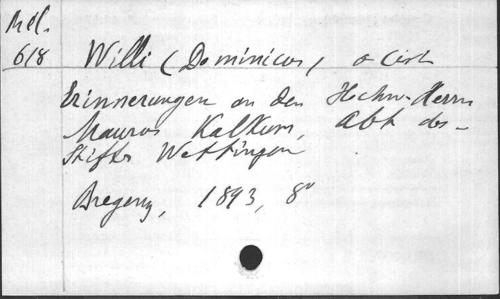 Mél.
618 Willi (Dominicus) o Cist
Erinnerungen an den Hochw. Herrn
Maurus Kalkum, Abt des
Stiftes Wettingen
Bregenz, 1893, 8°